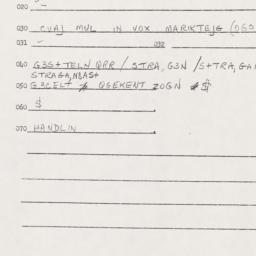 020 –
030 CVAJ MVL IN VOX MARIKTEJG (060
031 – 032
040 G3S+TELN QRR / STRA, G3N /S+TRA, GA
STRAGA, N8AS+
050 G3CELT QGEKENT ZOGN $
060 $
070 HANDLIN